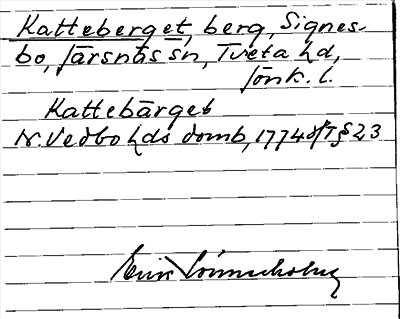 Katteberget, berg, Signes-
bo, Järsnäs sn, Tveta hd,
Jönk. l.
Kattebärget
N. Vedbo hds domb, 1774 § 23